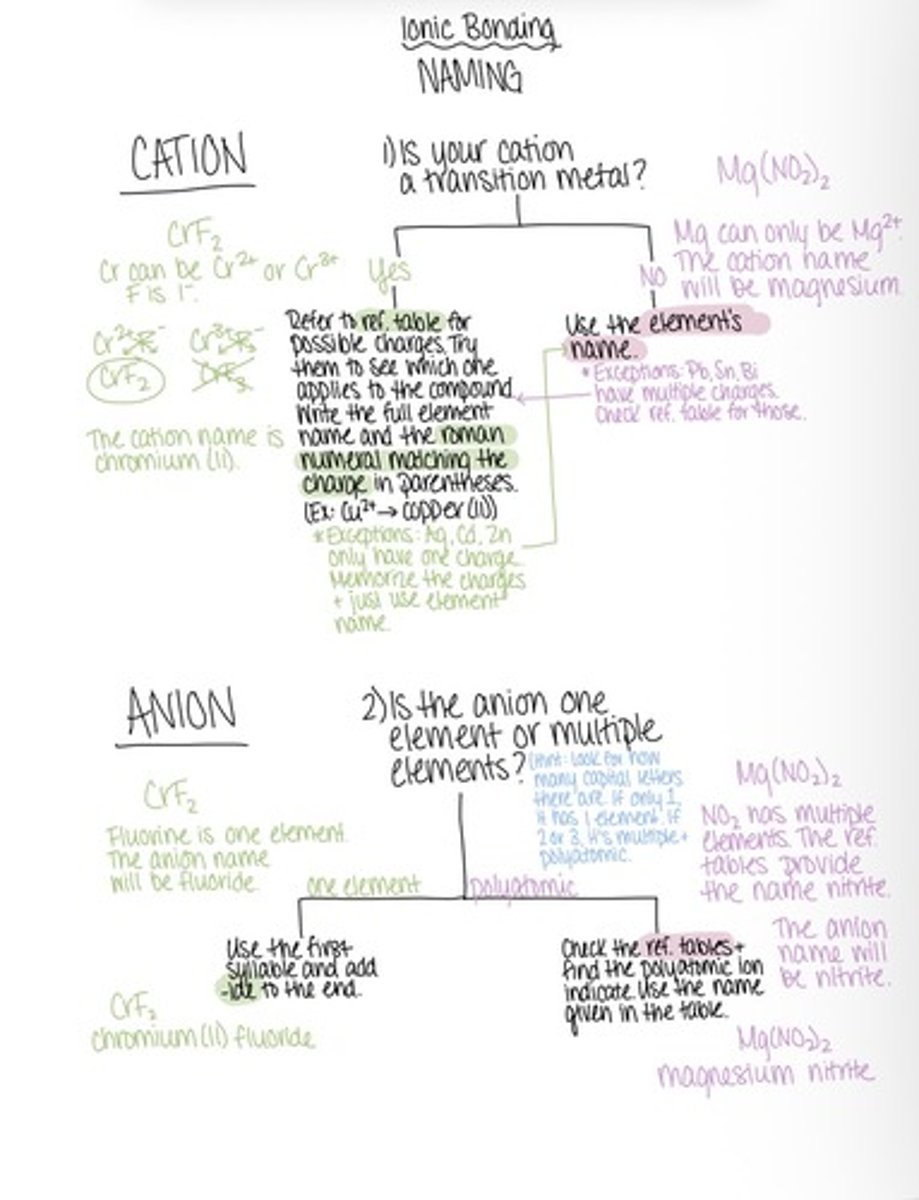 Ionic Bonding
NAMING
CATION
1) Is your cation
a transition metal?
Mg(NO₂)₂
CrF₂
Cr can be Cr²⁺ or Cr³⁺
F is 1⁻.
Yes
NO
Mg can only be Mg²⁺.
The cation name
will be magnesium.
Cr²⁺ F⁻ Cr³⁺ F⁻
CrF₂ CrF₃
The cation name is
chromium (II).
Refer to ref. table for
possible charges. Try
them to see which one
applies to the compound.
Write the full element
name and the roman
numeral matching the
charge in parentheses.
(Ex: Cu²⁺ → copper (II))
*Exceptions: Ag, Cd, Zn
only have one charge.
Memorize the charges
+ just use element
name.
Use the element's
name.
*Exceptions: Pb, Sn, Bi
have multiple charges.
Check ref. table for those.
ANION
2) Is the anion one
element or multiple
elements?
(Hint: Look for how
many capital letters
there are. If only 1,
it has 1 element. If
2 or 3, it's multiple +
polyatomic.
CrF₂
Fluorine is one element.
The anion name
will be fluoride.
one element
polyatomic
Mg(NO₂)₂
NO₂ has multiple
elements. The ref.
tables provide
the name nitrite.
The anion
name will
be nitrite.
Use the first
syllable and add
-ide to the end.
Check the ref. tables +
find the polyatomic ion
indicate. Use the name
given in the table.
CrF₂
chromium (II) fluoride
Mg(NO₂)₂
magnesium nitrite